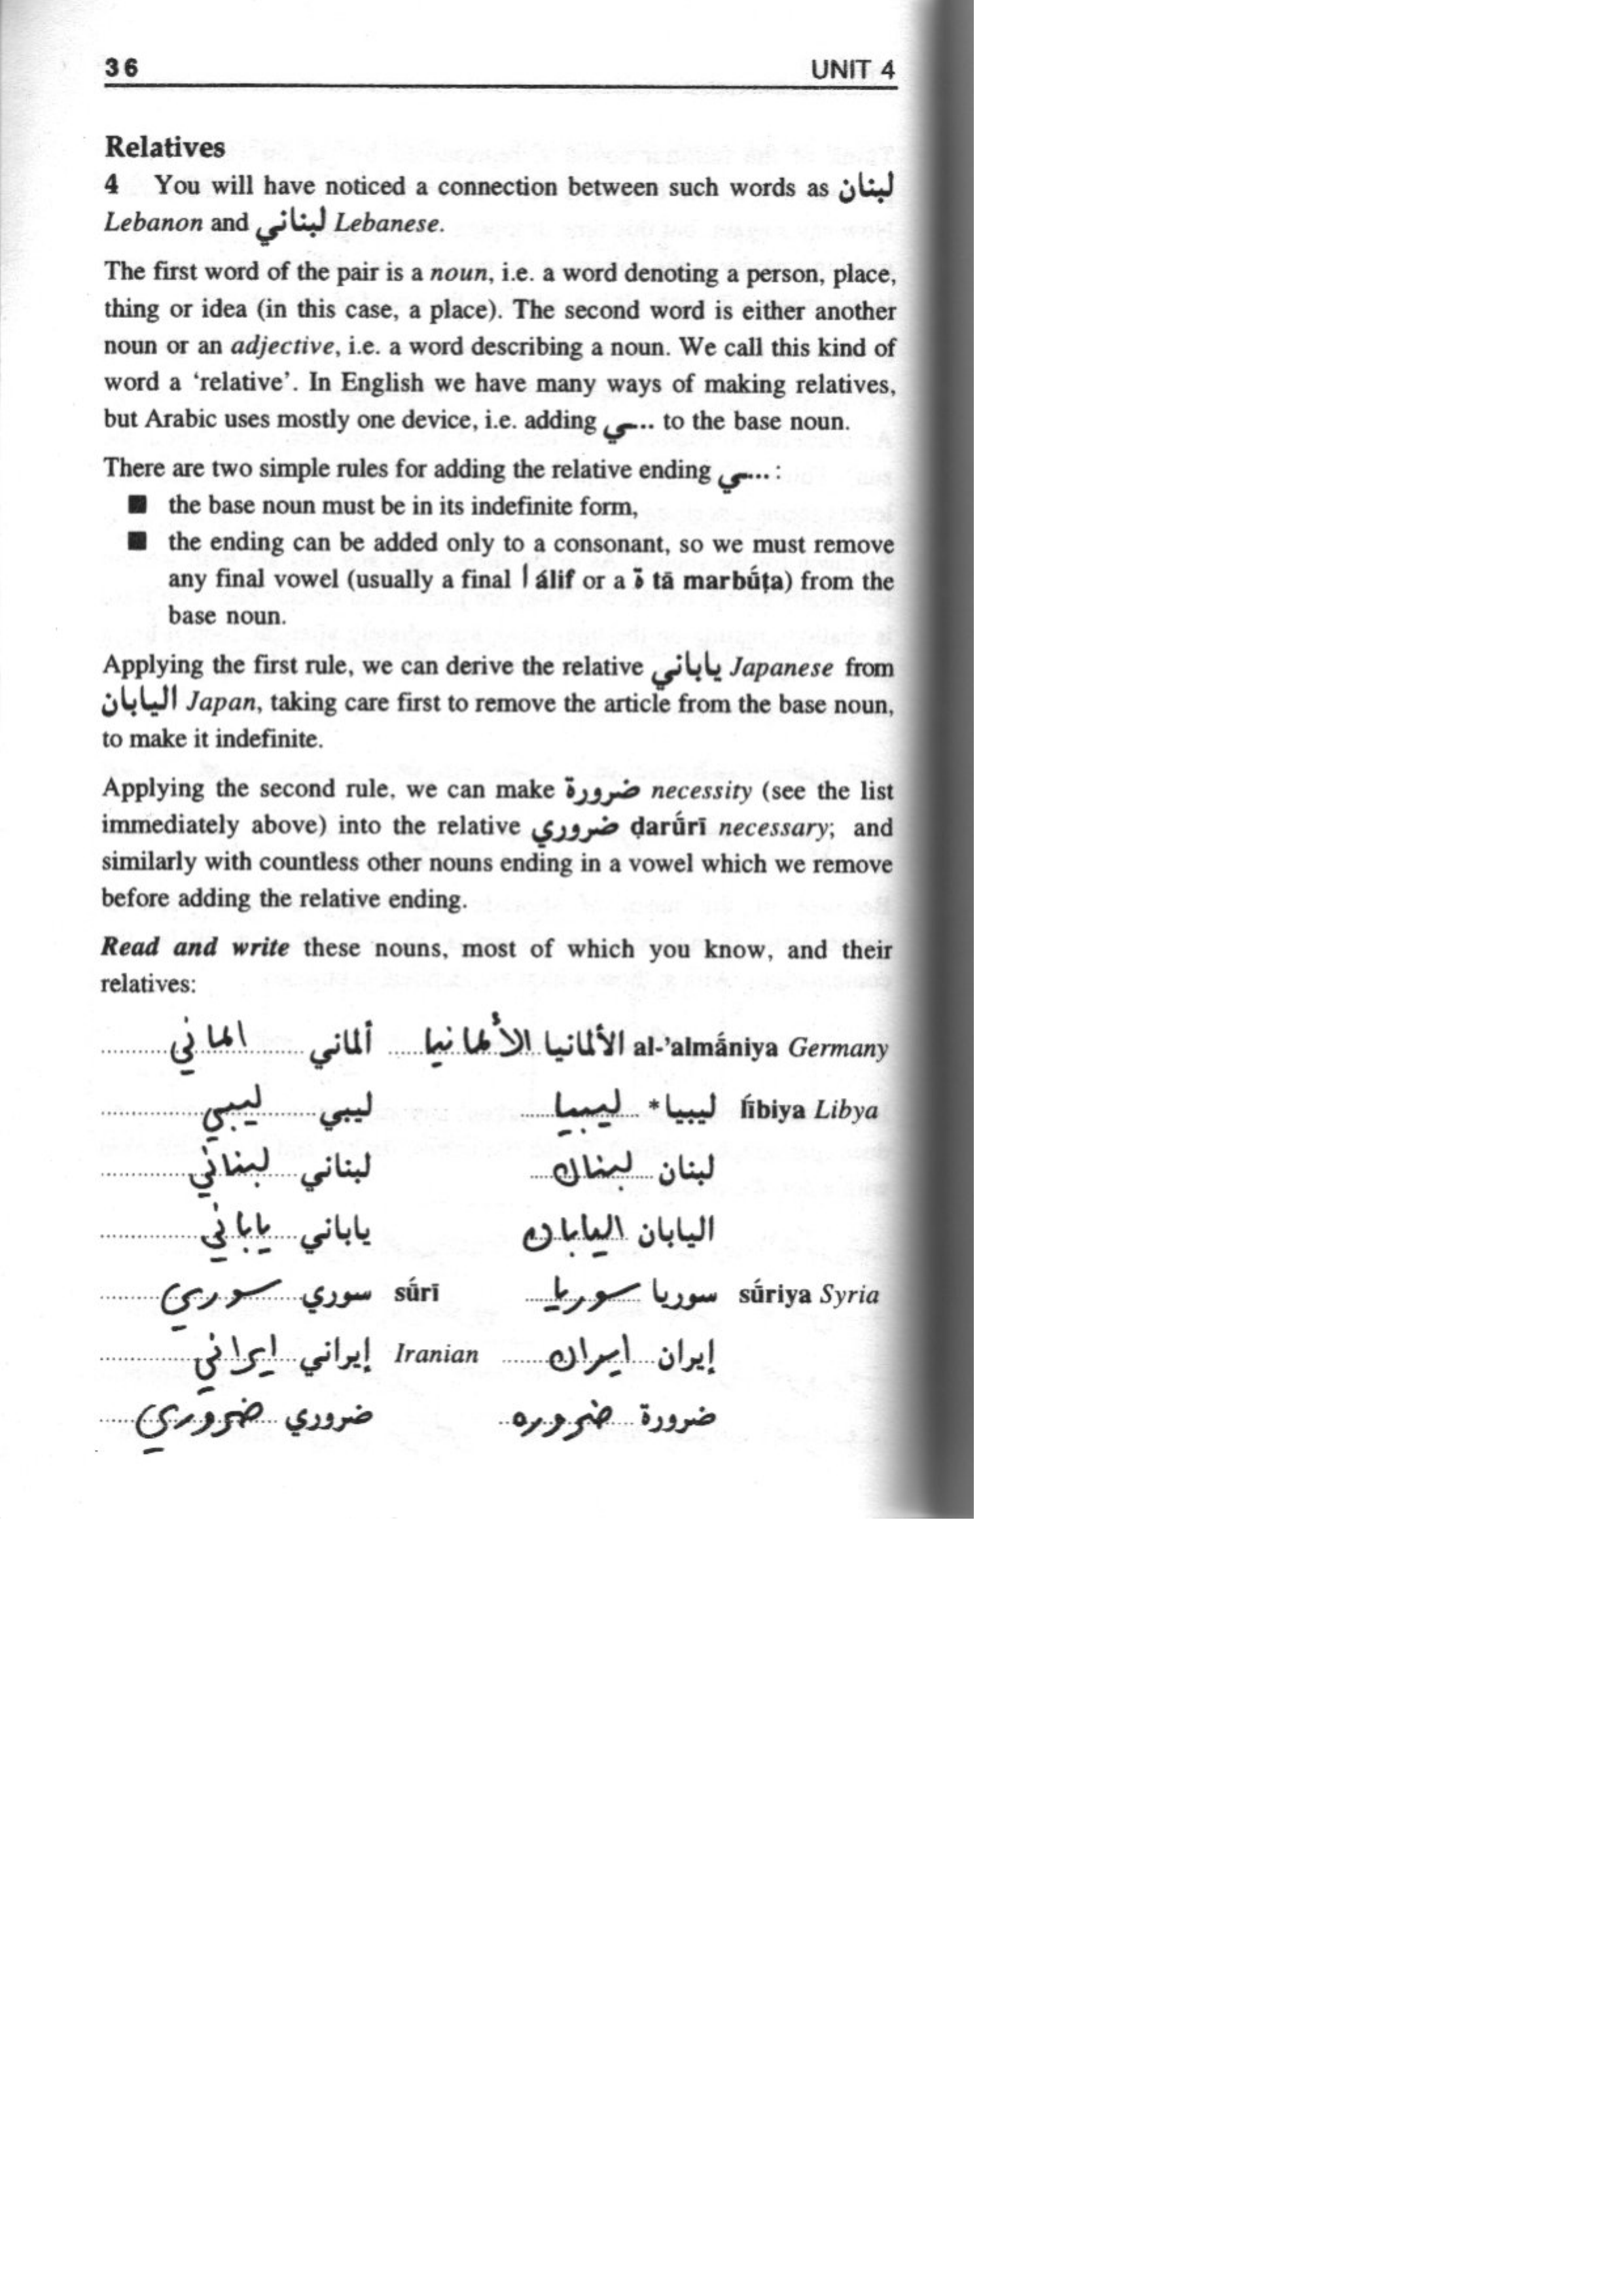 36 UNIT 4
Relatives
4 You will have noticed a connection between such words as لبنان
Lebanon and لبناني Lebanese.
The first word of the pair is a noun, i.e. a word denoting a person, place,
thing or idea (in this case, a place). The second word is either another
noun or an adjective, i.e. a word describing a noun. We call this kind of
word a ‘relative’. In English we have many ways of making relatives,
but Arabic uses mostly one device, i.e. adding ...ـي to the base noun.
There are two simple rules for adding the relative ending ...ـي :
■ the base noun must be in its indefinite form,
■ the ending can be added only to a consonant, so we must remove
any final vowel (usually a final ا álif or a ة tā marbū́ṭa) from the
base noun.
Applying the first rule, we can derive the relative ياباني Japanese from
اليابان Japan, taking care first to remove the article from the base noun,
to make it indefinite.
Applying the second rule, we can make ضرورة necessity (see the list
immediately above) into the relative ضروري ḍarū́rī necessary; and
similarly with countless other nouns ending in a vowel which we remove
before adding the relative ending.
Read and write these nouns, most of which you know, and their
relatives:
al-’almā́niya Germany الألمانيا الألمانيا ألماني الماني
lī́biya Libya ليبيا* ليبيا ليبي ليبي
لبنان لبنان لبناني لبناني
اليابان اليابان ياباني ياباني
sū́riya Syria سوريا سوريا sū́rī سوري سوري
إيران ايران Iranian إيراني إيراني
ضرورة ضروره ضروري ضروري